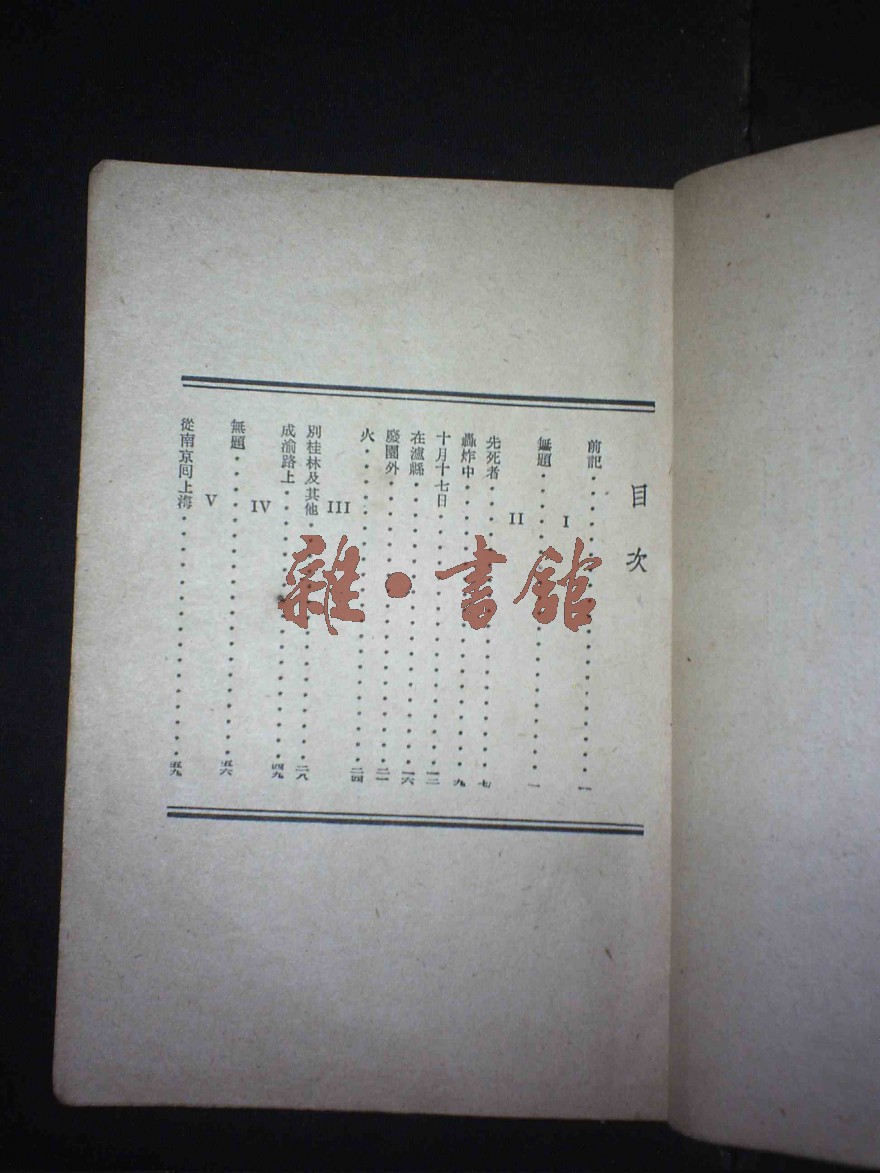 目次
前記・・・・・・・・・・・・・・・・一
I
無題・・・・・・・・・・・・・・・・一
II
先死者・・・・・・・・・・・・・・・七
轟炸中・・・・・・・・・・・・・・・九
十月十七日・・・・・・・・・・・・・一二
在瀘縣・・・・・・・・・・・・・・・一六
廢園外・・・・・・・・・・・・・・・二一
火・・・・・・・・・・・・・・・・・二四
III
別桂林及其他・・・・・・・・・・・・二八
成渝路上・・・・・・・・・・・・・・四九
IV
無題・・・・・・・・・・・・・・・・五六
V
從南京囘上海・・・・・・・・・・・・五九
雜・書館